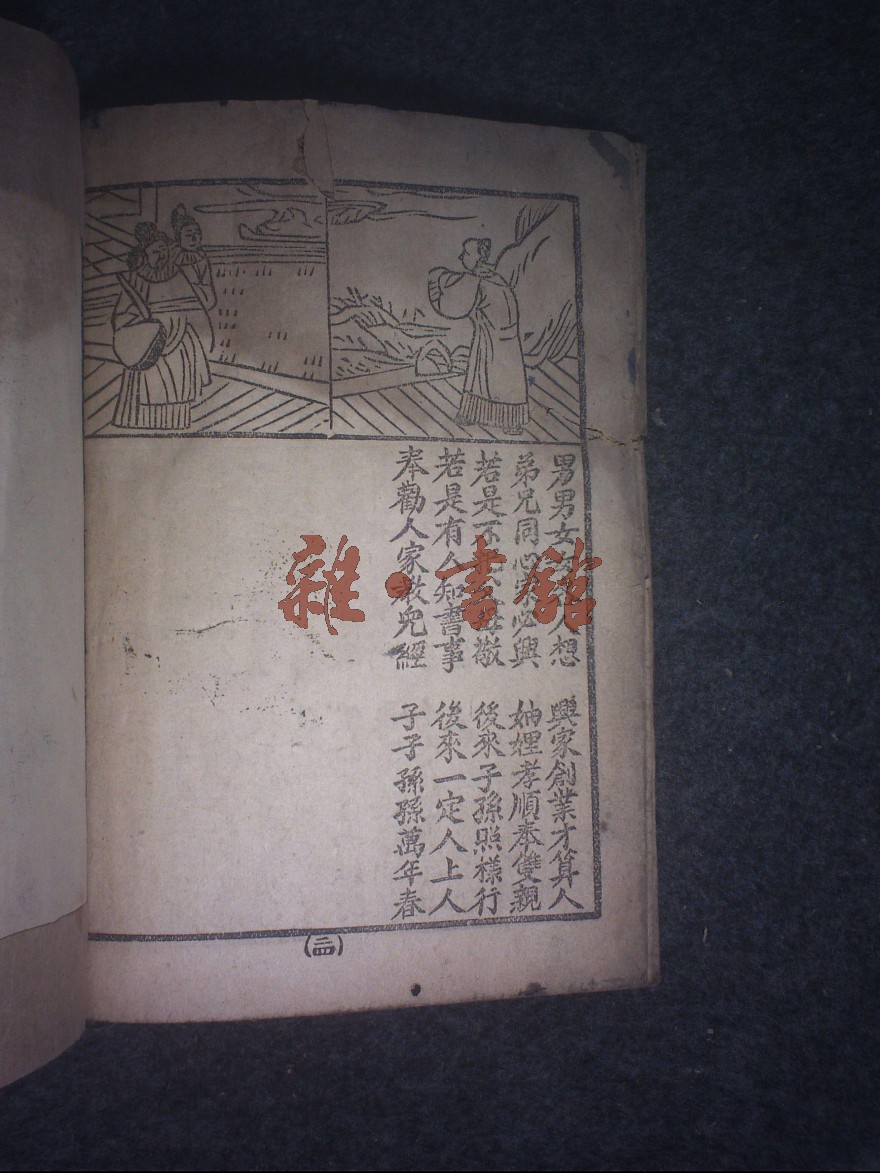 男男女女人想 興家創業才算人
弟兄同心家必興 妯娌孝順奉雙親
若是不敬 後來子孫照樣行
若是有人知書事 後來一定人上人
奉勸人家教兒經 子子孫孫萬年春
雜·書館